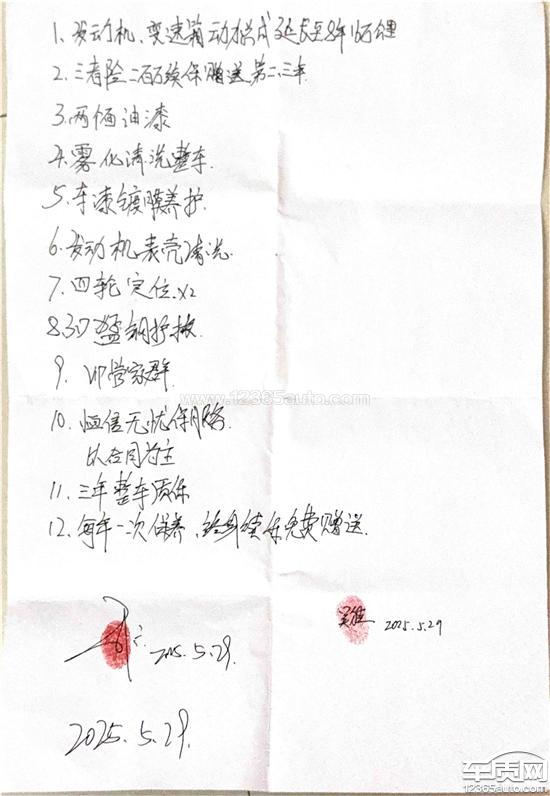 1、发动机、变速箱动总成延长至8年16万公里
2. 三者险二百万续保赠送第二、三年
3. 两个面油漆
4. 雾化清洗整车
5. 车漆镀膜养护.
6. 发动机表壳清洗.
7. 四轮定位.X2
8. 3D 锰钢护板.
9. VIP管家群
www.12365auto.com
10. 恒信无忧保服务.
以合同为主
11. 三年整车质保
12. 每年一次保养、终身续保免费赠送.
2025.5.29.
2025.5.29
2025.5.29.
车质网
12365auto.com